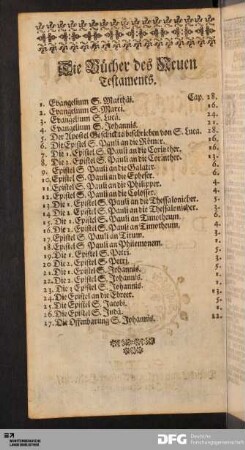 Die Bücher des Neuen
Testaments.
1. Evangelium S. Matthäi. Cap. 28.
2. Evangelium S. Marci. 16.
3. Evangelium S. Lucä. 24.
4. Evangelium S. Johannis.
5. Der Apostel Geschichte beschrieben von S. Luca. 28.
6. Die Epistel S. Pauli an die Römer. 16.
7. Die 1. Epistel S. Pauli an die Corinther. 16.
8. Die 2. Epistel S. Pauli an die Corinther. 13.
9. Epistel S. Pauli an die Galater. 6.
10. Epistel S. Pauli an die Epheser. 6.
11. Epistel S. Pauli an die Philipper. 4.
12. Epistel S. Pauli an die Colosser. 4.
13. Die 1. Epistel S. Pauli an die Thessalonicher.
14. Die 2. Epistel S. Pauli an die Thessalonicher.
15. Die 1. Epistel S. Pauli an Timotheum. 6.
16. Die 2. Epistel S. Pauli an Timotheum. 4.
17. Epistel S. Pauli an Titum.
18. Epistel S. Pauli an Philemonem.
19. Die 1. Epistel S. Petri.
20. Die 2. Epistel S. Petri.
21. Die 1. Epistel S. Johannis.
22. Die 2. Epistel S. Johannis.
23. Die 3. Epistel S. Johannis.
24. Die Epistel an die Ebreer.
25. Die Epistel S. Jacobi.
26. Die Epistel S. Judä.
27. Die Offenbarung S. Johannis. 22.
DFG Deutsche
Forschungsgemeinschaft